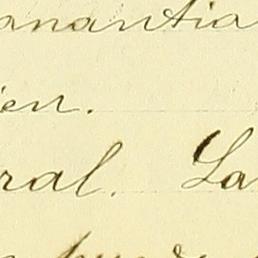 anantia
en.
ral. La